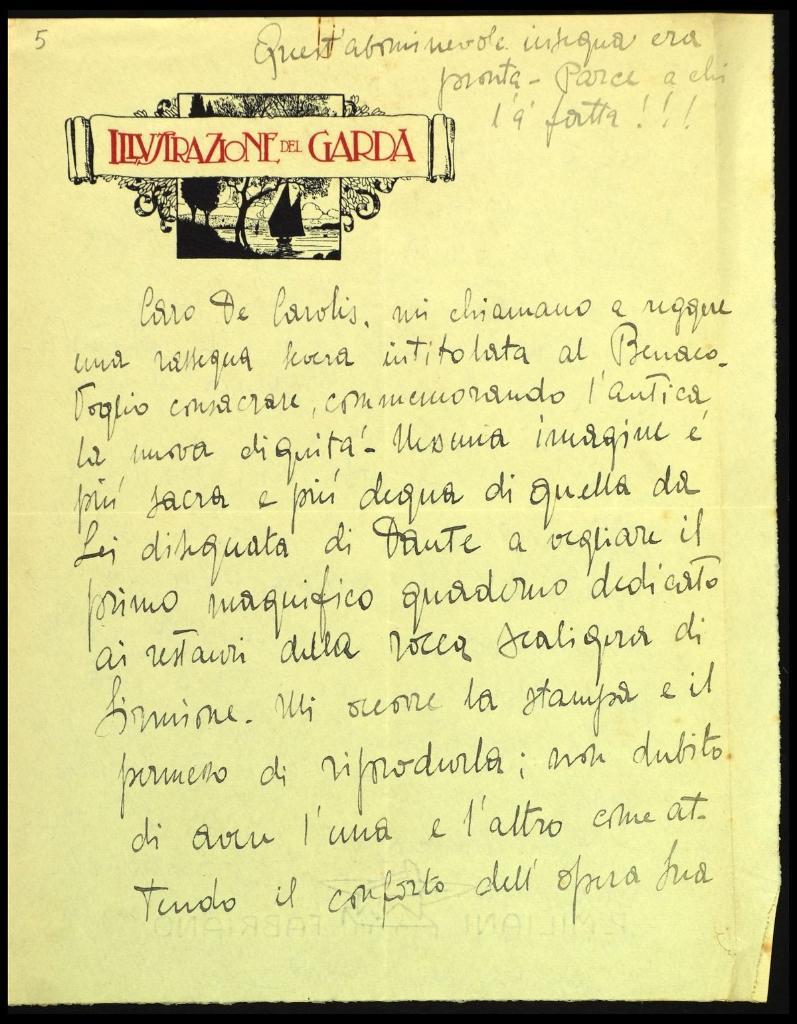 5
Quest'abominevole insegna era
pronta - Parce a chi
l'à fatta!!!
ILLVSTRAZIONE DEL GARDA
Caro De Carolis, mi chiamano a reggere
una rassegna severa intitolata al Benaco.
Voglio consacrare, commemorando l'antica
la nuova dignità - Nessuna imagine è
più sacra e più degna di quella da
Lei disegnata di Dante a vegliare il
primo magnifico quaderno dedicato
ai restauri della rocca scaligera di
Sirmione. Mi occorre la stampa e il
permesso di riprodurla; non dubito
di aver l'una e l'altro come at-
tendo il conforto dell'opera Sua
FABRIANO